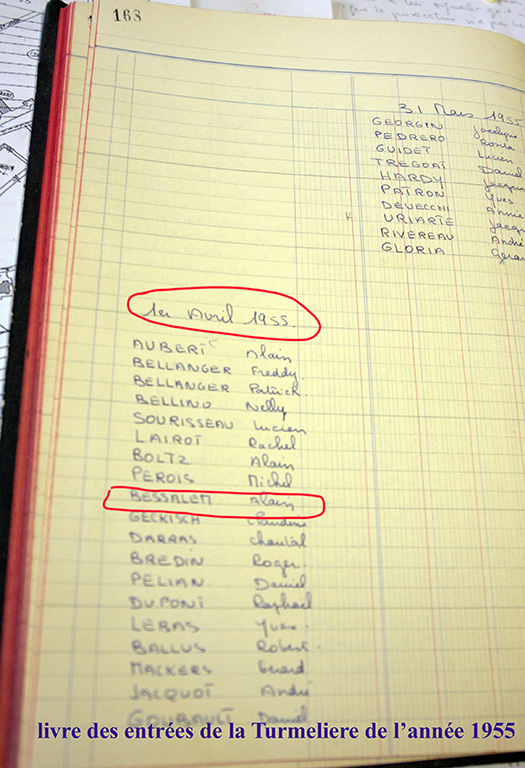 168
31 Mars 1955
GEORGIN Jocelyne
PEDRERO
GUIDET Lucien
TREGOAT Daniel
HARDY Jacque
PATRON Yves
DEVECCHI Annie
URIARTE Jacq
RIVEREAU André
GLORIA Gérar
1er Avril 1955.
AUBERT Alain
BELLANGER Freddy.
BELLANGER Patrick.
BELLINO Nelly
SOURISSEAU Lucien
LAIROT Rachel
BOLTZ Alain
PEROIS Michel
BESSALEM Alain
GECKISCH Claudine
DARRAS Chantal
BREDIN Roger.
PELIAN Daniel
DUPONT Raphaël
LEBAS Yves.
BALLUS Robert.
MACKERS Gérard
JACQUOT André
GOUBAULT Daniel
livre des entrées de la Turmeliere de l’année 1955